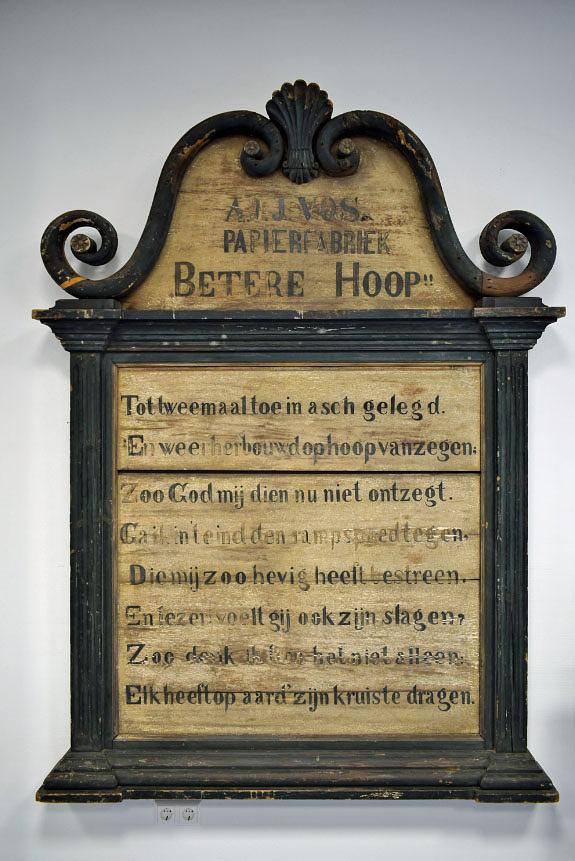 A.J.J. VOS.
PAPIERFABRIEK
BETERE HOOP"
Tot tweemaal toe in asch gelegd.
En weer herbouwd op hoop van zegen.
Zoo God mij dien nu niet ontzegt.
Ga ik in't eind den rampspoed tegen,
Die mij zoo hevig heeft bestreen.
En lezer voelt gij ook zijn slagen,
Zoo denk ik het niet alleen.
Elk heeft op aard' zijn kruis te dragen.